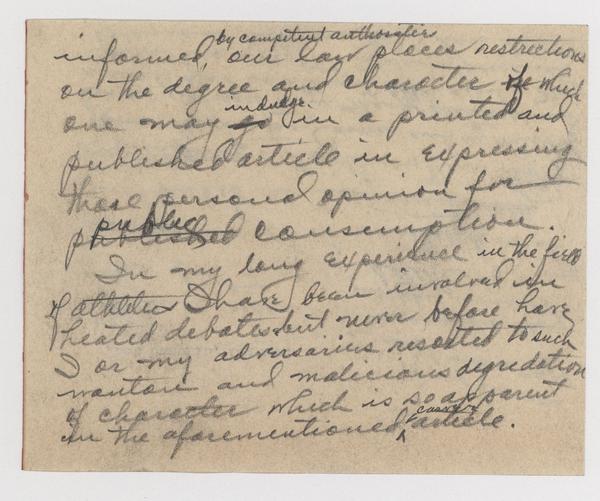 by competent authorities
informed, our law places restrictions
on the degree and character of which
indulge
one may go in a printed and
published article in expressing
those personal opinion for
public
published consumption.
In my long experience in the field
of athletics I have been involved in
heated debates but never before have
I or my adversaries resorted to such
wanton and malicious degredation
of character which is so apparent
in the aforementioned article.